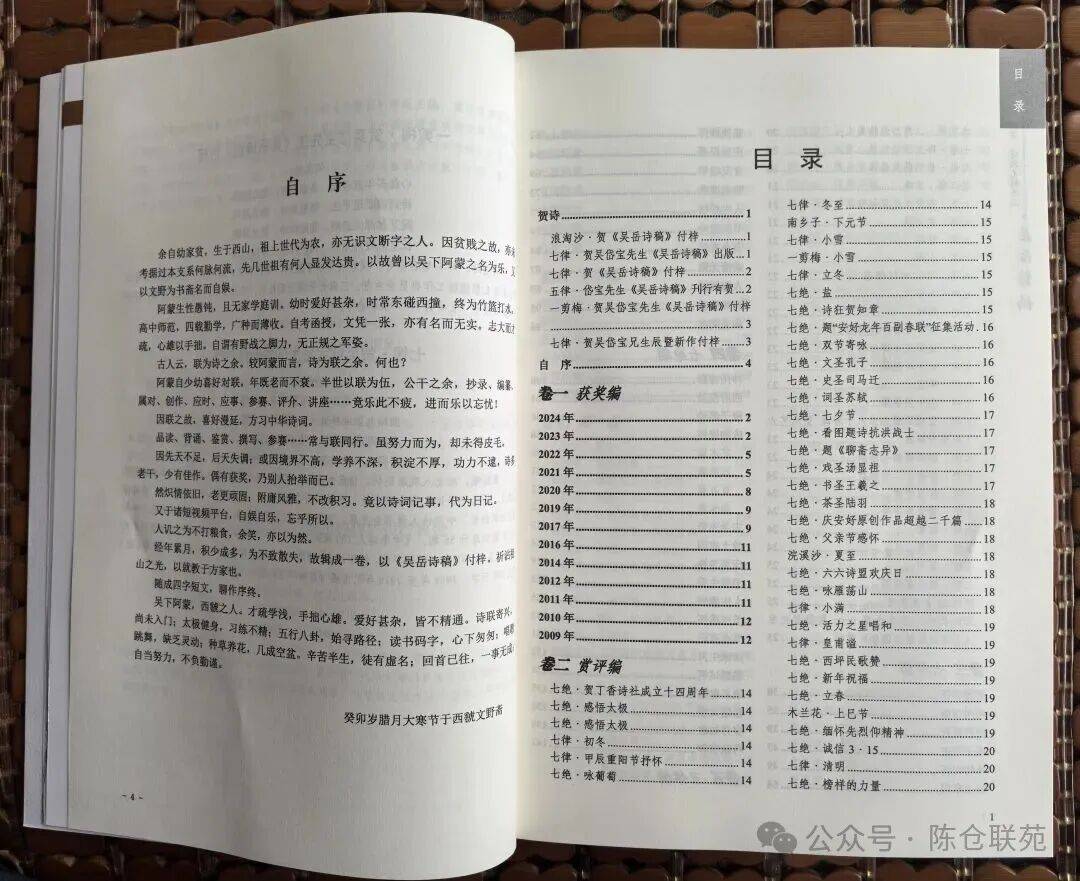 自 序
余自幼家贫，生于西山，祖上世代为农，亦无识文断字之人。因贫贱之故，
考掘过本支系何脉何流，先几世祖有何人显发达贵。以故曾以吴下阿蒙之名为乐，
以文野为书斋名而自娱。
阿蒙生性愚钝，且无家学庭训。幼时爱好甚杂，时常东碰西撞，终为竹篮打水。
高中师范，四载勤学，广种而薄收。自考函授，文凭一张，亦有名而无实。志大而
疏，心雄以手拙。自谓有野战之脚力，无正规之军姿。
古人云，联为诗之余。较阿蒙而言，诗为联之余。何也？
阿蒙自少幼喜好对联，年既老而不衰。半世以联为伍，公干之余，抄录、编纂、
属对、创作、应时、应事、参赛、评介、讲座……竟乐此不疲，进而乐以忘忧！
因联之故，喜好漫延，方习中华诗词。
品读、背诵、鉴赏、撰写、参赛……常与联同行。虽努力而为，却未得皮毛，
因先天不足，后天失调；或因境界不高，学养不深，积淀不厚，功力不逮，诗多
老干，少有佳作。偶有获奖，乃别人抬举而已。
然炽情依旧，老更顽固；附庸风雅，不改积习。竟以诗词记事，代为日记。
又于诸短视频平台，自娱自乐，忘乎所以。
人讥之为不打粮食，余笑，亦以为然。
经年累月，积少成多，为不致散失，故辑成一卷，以《吴岳诗稿》付梓。祈沾
山之光，以就教于方家也。
随成四字短文，聊作序终。
吴下阿蒙，西虢之人。才疏学浅，手拙心雄。爱好甚杂，皆不精通。诗联寄兴，
尚未入门；太极健身，习练不精；五行八卦，始寻路径；读书码字，心下匆匆；唱歌
跳舞，缺乏灵动；种草养花，几成空盆。辛苦半生，徒有虚名；回首已往，一事无成
自当努力，不负勤谨。
癸卯岁腊月大寒节于西虢文野斋
- 4 -
目录
目 录
贺诗 1
浪淘沙·贺《吴岳诗稿》付梓 1
七律·贺吴岱宝先生《吴岳诗稿》出版 1
七律·贺《吴岳诗稿》付梓 2
五律·岱宝先生《吴岳诗稿》刊行有贺 2
一剪梅·贺吴岱宝先生《吴岳诗稿》付梓
3
七律·贺吴岱宝兄生辰暨新作付梓 3
自 序 4
卷一 获奖编
2024年 2
2023年 2
2022年 5
2021年 5
2020年 8
2019年 9
2017年 9
2016年 11
2014年 11
2012年 11
2011年 11
2010年 12
2009年 12
卷二 赏评编
七绝·贺丁香诗社成立十四周年 14
七绝·感悟太极 14
七绝·感悟太极 14
七律·初冬 14
七律·甲辰重阳节抒怀 14
七绝·咏葡萄 14
七律·冬至 14
南乡子·下元节 15
七律·小雪 15
一剪梅·小雪 15
七律·立冬 15
七绝·盐 15
七绝·诗狂贺知章 15
七绝·题“安好龙年百副春联”征集活动 16
七绝·双节寄咏 16
七绝·文圣孔子 16
七绝·史圣司马迁 16
七绝·词圣苏轼 16
七绝·七夕节 17
七绝·看图题诗抗洪战士 17
七绝·题《聊斋志异》 17
七绝·戏圣汤显祖 17
七绝·书圣王羲之 17
七绝·茶圣陆羽 18
七绝·庆安好原创作品超越二千篇 18
七绝·父亲节感怀 18
浣溪沙·夏至 18
七绝·六六诗盟欢庆日 18
七绝·咏雁荡山 18
七律·小满 18
七绝·活力之星唱和 19
七律·皇甫谧 19
七绝·西坪民歌赞 19
七绝·新年祝福 19
七绝·立春 19
木兰花·上巳节 19
七绝·缅怀先烈仰精神 19
七绝·诚信3·15 20
七律·清明 20
七绝·榜样的力量 20
1
公众号·陈仓联苑